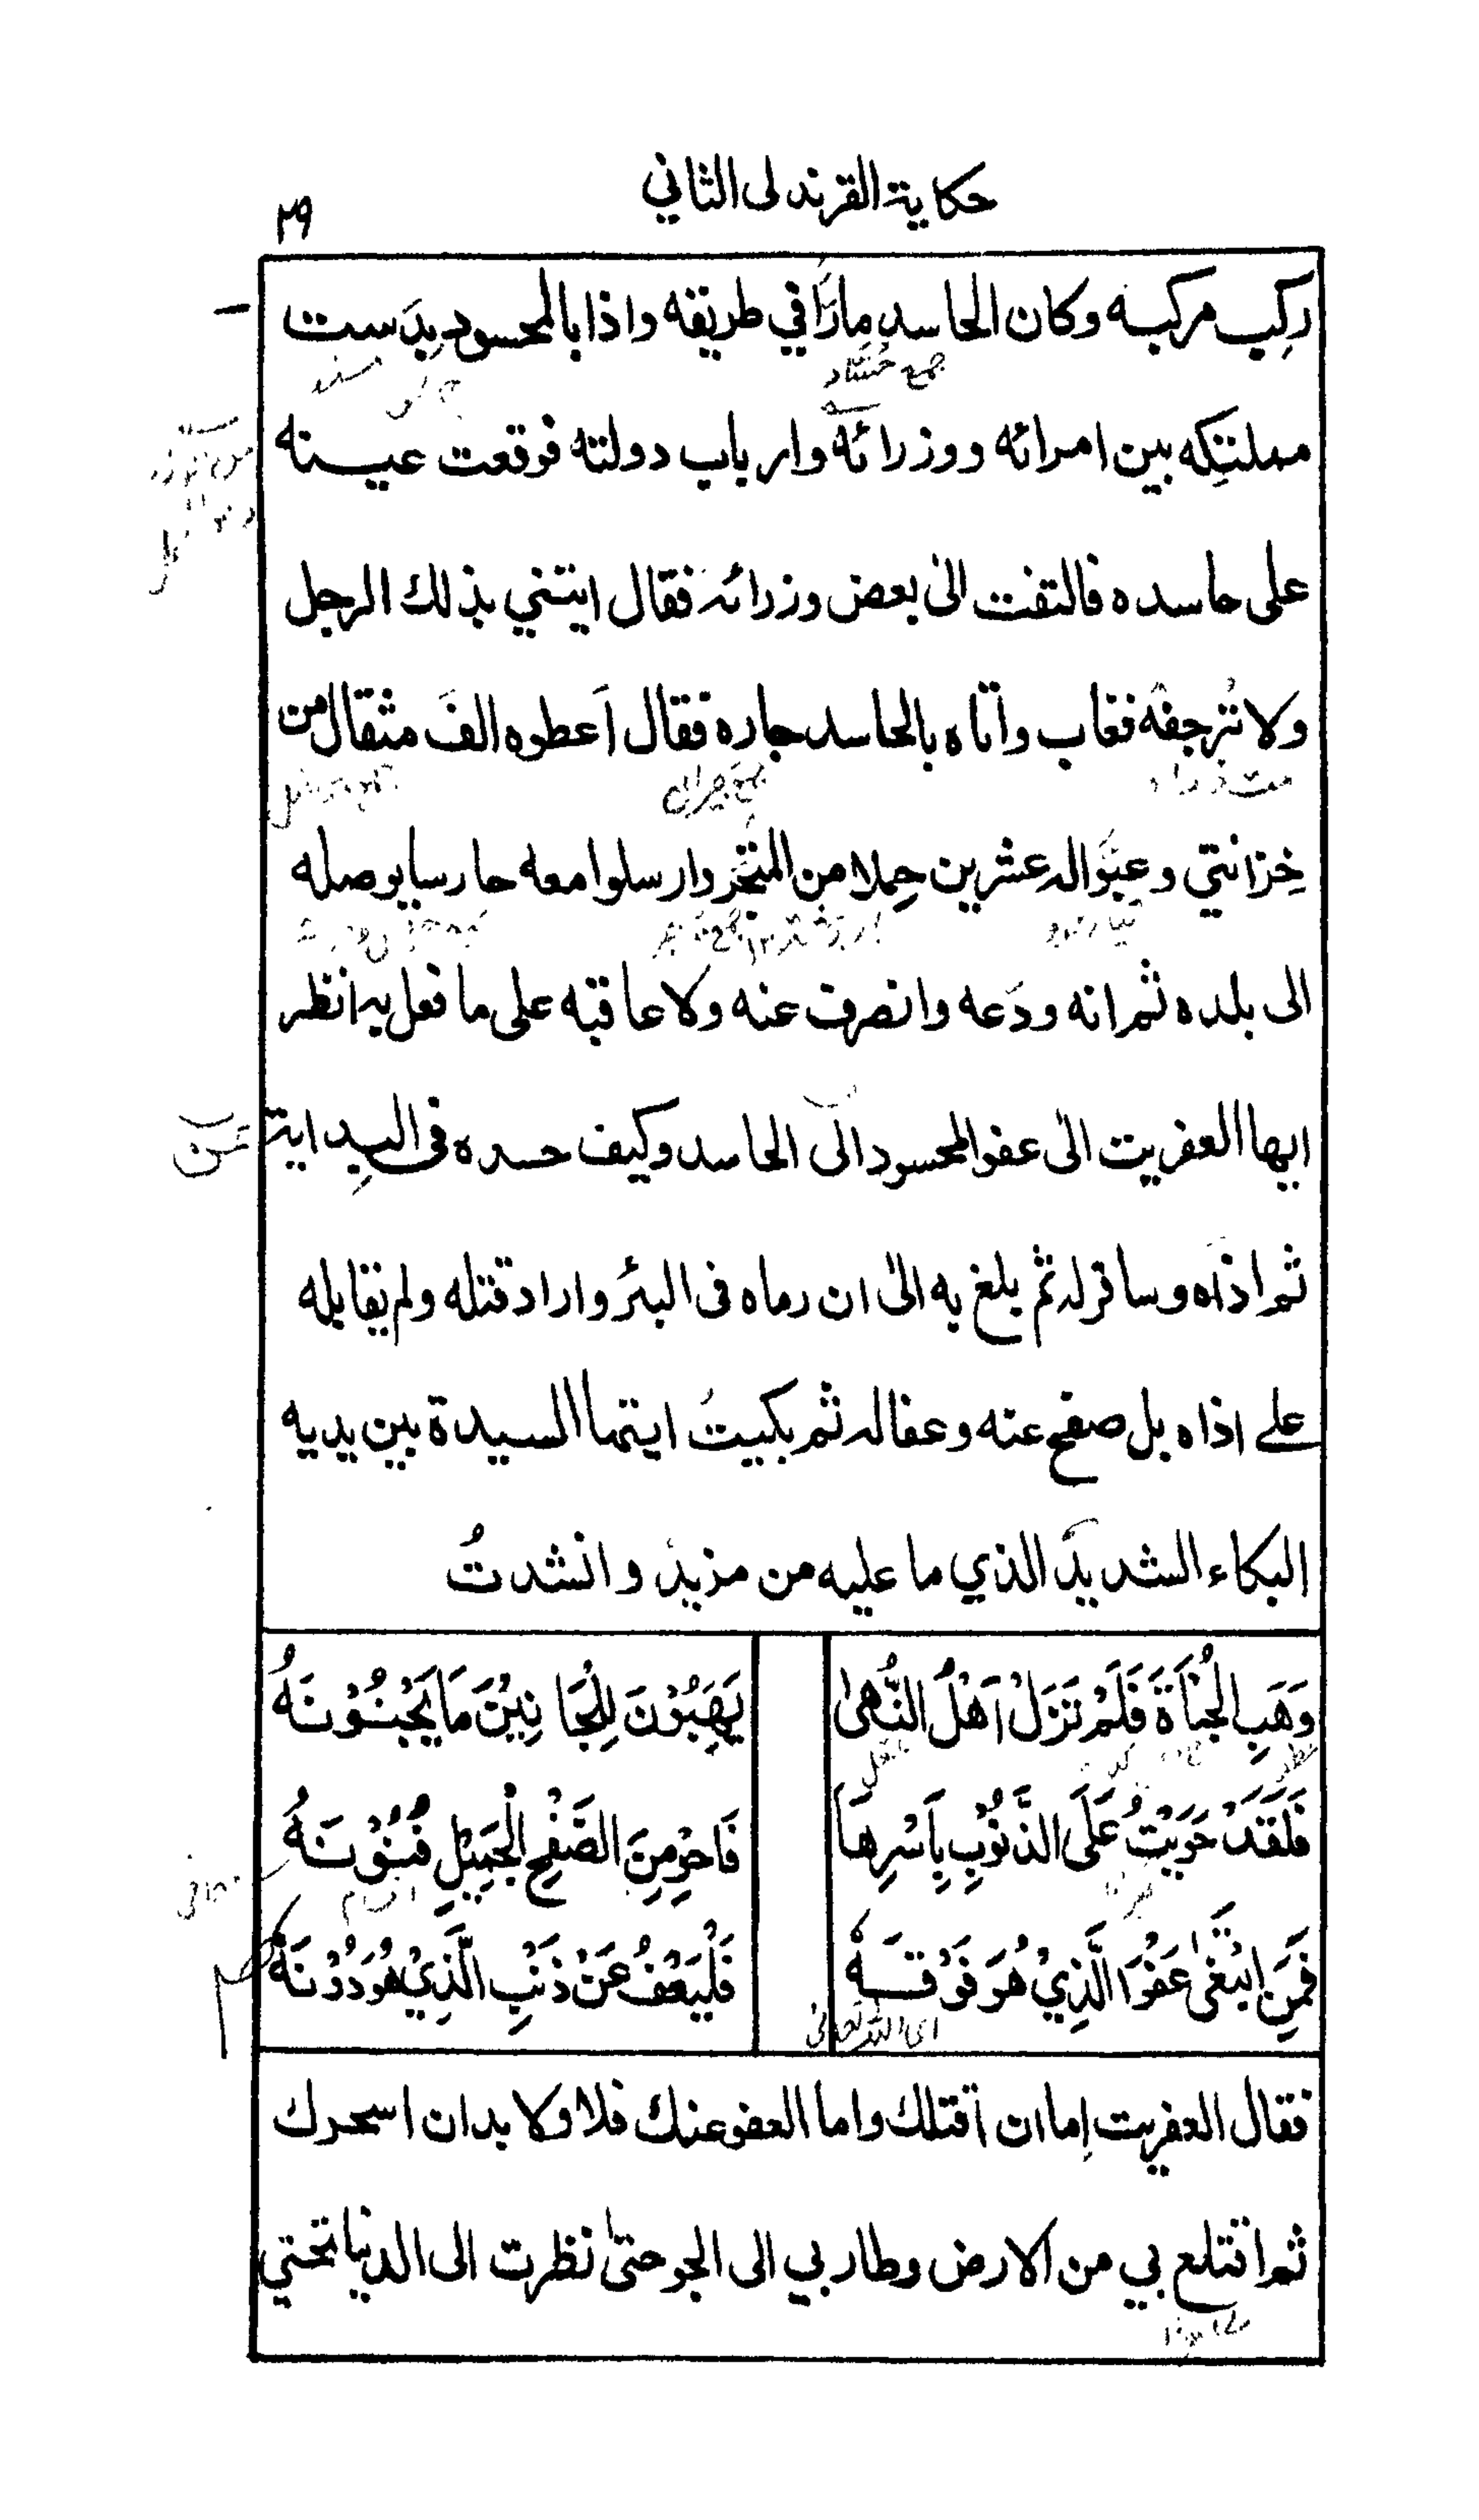 حكاية القرندلى الثاني
٢٩
ركِب مركبه وكان الحاسد مارًّا في طريقه واذا بالمحسود بِدَست
جمع حُسّاد
مملتِكه بين امرائه ووزرائه وارباب دولته فوقعت عينه
على حاسده فالتفت الى بعض وزرائه فقال ايتني بذلك الرجل
ولا تُرجفه فغاب واتاه بالحاسد جاره فقال اَعطوه الفَ مثقال من
جمع جيران
خِزانتي وعبّوا له عشرين حِملا من المتجَر وارسلوا معه حارسا يوصله
الى بلده ثم انه ودَعه وانصرف عنه ولا عاقبه على ما فعل به انظر
ايها العفريت الى عفو المحسود الَى الحاسد وكيف حسده فى البِداية
ثم اذاه وسافر له ثم بلغ به الى ان رماه فى البئر واراد قتله ولم يقابله
على اذاه بل صفح عنه وعفا له ثم بكيتُ ايتها السيدة بين يديه
البكاء الشديدَ الذي ما عليه من مزيد وانشدتُ
وَهَبِ الْجُنَاةَ فَلَمْ تَزَلْ اَهْلُ النُّهىٰ يَهَبُوْنَ لِلْجَانِيْنَ مَا يَجْنُوْنَهُ
فَلَقَدْ حَوَيْتُ عَلَى الذَّنُوْبِ بِاَسْرِهَا فَاحْوِ مِنَ الصَّفْحِ الْجَمِيْلِ فُنُوْنَهُ
فَمَنِ ابْتَغٰى عَفْوَ الَّذِيْ هُوَ فَوْقَهُ فَلْيَعْفُ عَنْ ذَنْبِ الَّذِيْ هُوَ دُوْنَهُ
اى الله تعالىٰ
فقال العفريت اِما ان اقتلك واما العفو عنك فلا ولا بد ان اسحرك
ثم اقتلع بي من الارض وطار بي الى الجو حتىٰ نظرت الى الدنيا تحتي